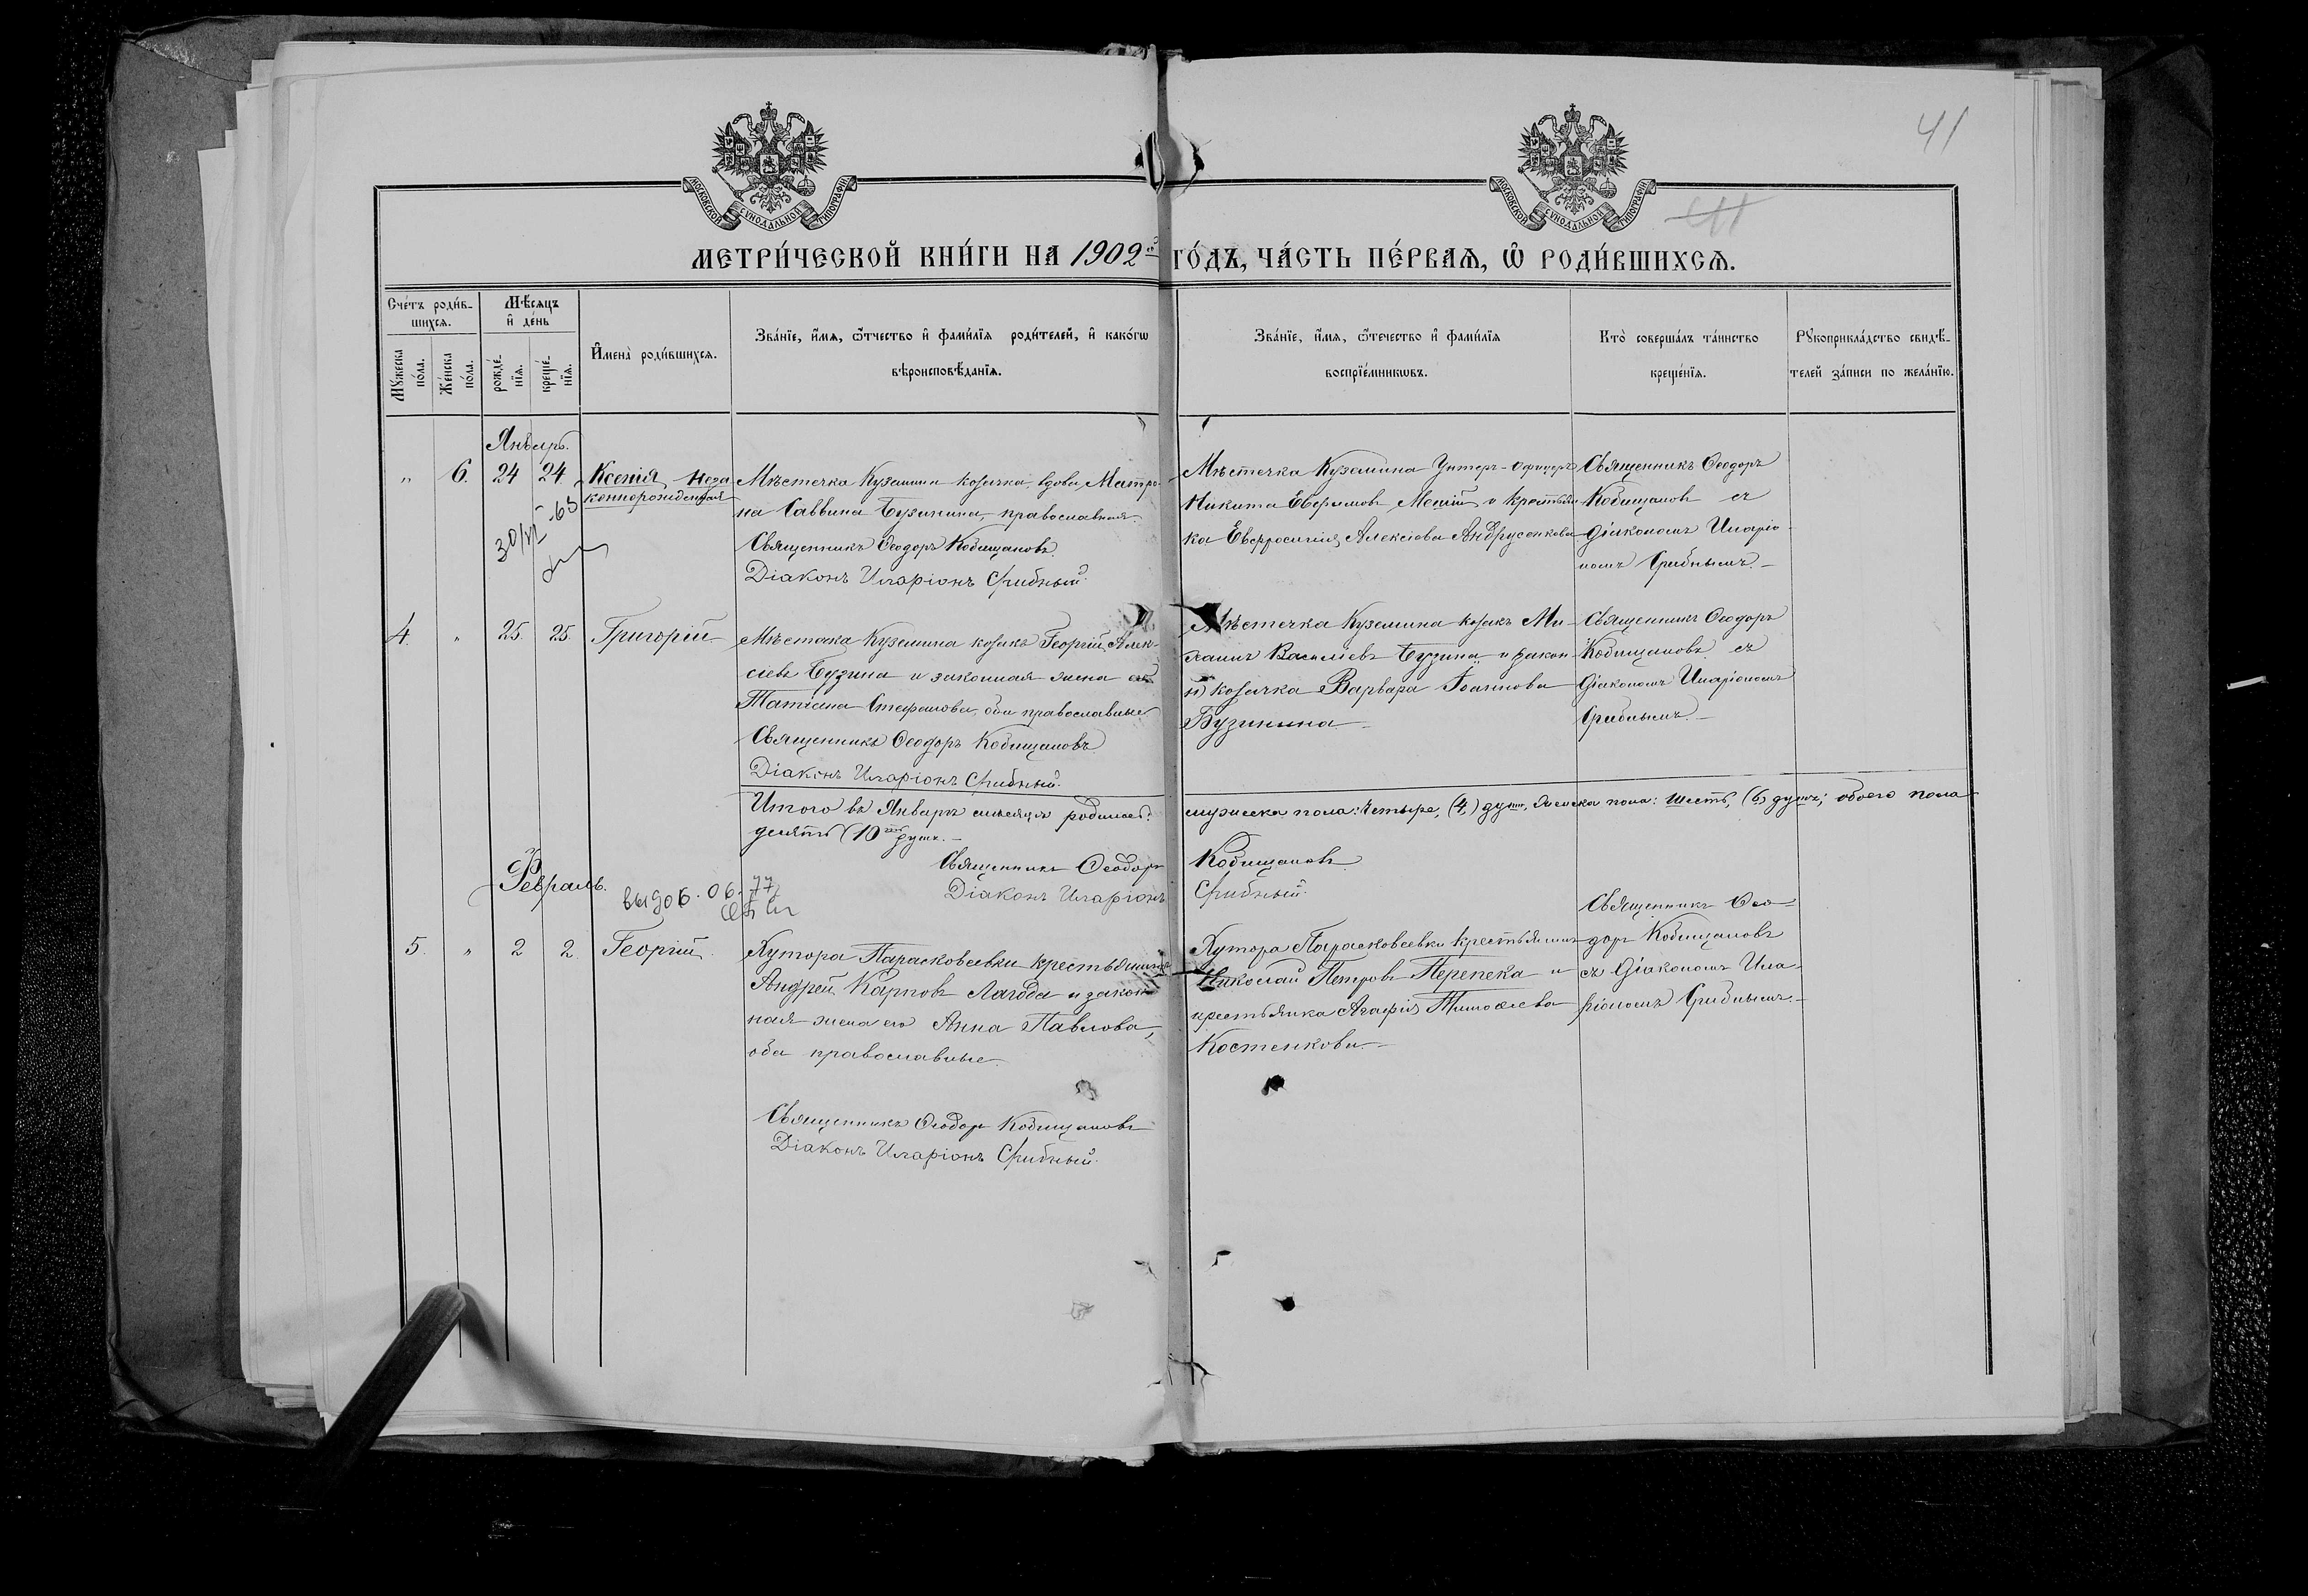 41
41
МОСКОВСКОЙ СѴНОДАЛЬНОЙ ТИПОГРАФІИ
МОСКОВСКОЙ СѴНОДАЛЬНОЙ ТИПОГРАФІИ
МЕТРИ́ЧЕСКОЙ КНИ́ГИ НА 1902й ГО́ДЪ, ЧА́СТЬ ПЕ́РВАѦ, Ѡ҆ РОДИ́ВШИХСѦ.
Сче́тъ роди́в-
шихсѧ.
Мѣ́сѧцъ
и҆ де́нь
Мꙋ́жеска по́ла.
Же́нска по́ла.
рожде́-
нїѧ.
креще́-
нїѧ.
И҆мена̀ роди́вшихсѧ.
Зва́нїе, и҆́мѧ, ѻ҆́тчество и҆ фами́лїѧ роди́телей, и҆ како́гѡ
вѣроисповѣ́данїѧ.
Зва́нїе, и҆́мѧ, ѻ҆́течество и҆ фами́лїѧ
воспрїе́мникѡвъ.
Кто̀ соверша́лъ та́инство
креще́нїѧ.
Рꙋкоприкла́дство свидѣ́-
телей за́писи по жела́нїю.
Январь.
" 6. 24 24 Ксенія, неза
коннорожденная
30/VI-65
Мѣстечка Куземина козачка, вдова, Матро-
на Саввина Бузинина, православная.
Священникъ Ѳеодоръ Кобищановъ.
Діаконъ Иларіонъ Срибный.
Мѣстечка Куземина Унтеръ-офицеръ
Никита Евфимовъ Мешій и крестьян
ка Евфросинія Алексіева Андрусенкова
Священникъ Ѳеодоръ
Кобищановъ съ
діакономъ Иларіо-
номъ Срибнымъ.-
4. " 25. 25. Григорій
Мѣстечка Куземина козакъ Георгій Алек-
сіевъ Бузина и законная жена его
Татіана Стефанова, оба православные
Священникъ Ѳеодоръ Кобищановъ
Діаконъ Иларіонъ Срибный.
Мѣстечка Куземина козакъ Ми-
хаилъ Василіевъ Бузина и
козачка Варвара Іоаннова
Бузинина.-
Священникъ Ѳеодоръ
Кобищановъ съ
діакономъ Иларіономъ
Срибнымъ.-
Итого въ Январѣ мѣсяцѣ родилось:
мужеска пола: четыре, (4) душ, женска пола: шесть, (6) душъ; обоего пола
десять (10 душъ.-
Священникъ Ѳеодоръ Кобищановъ
Діаконъ Иларіонъ Срибный.
Февраль.
выд 06.06.77
5. " 2 2. Георгій.
Хутора Парасковеевки крестьянинъ
Андрей Карповъ Лагода и закон
ная жена его Анна Павлова,
оба православные.
Священникъ Ѳеодоръ Кобищановъ
Діаконъ Иларіонъ Срибный.
Хутора Парасковеевки крестьянинъ
Николай Петровъ Перепека и
крестьянка Агафія Тимоѳеева
Костенкова.-
Священникъ Ѳео-
доръ Кобищановъ
съ діакономъ Ила-
ріономъ Срибнымъ.-